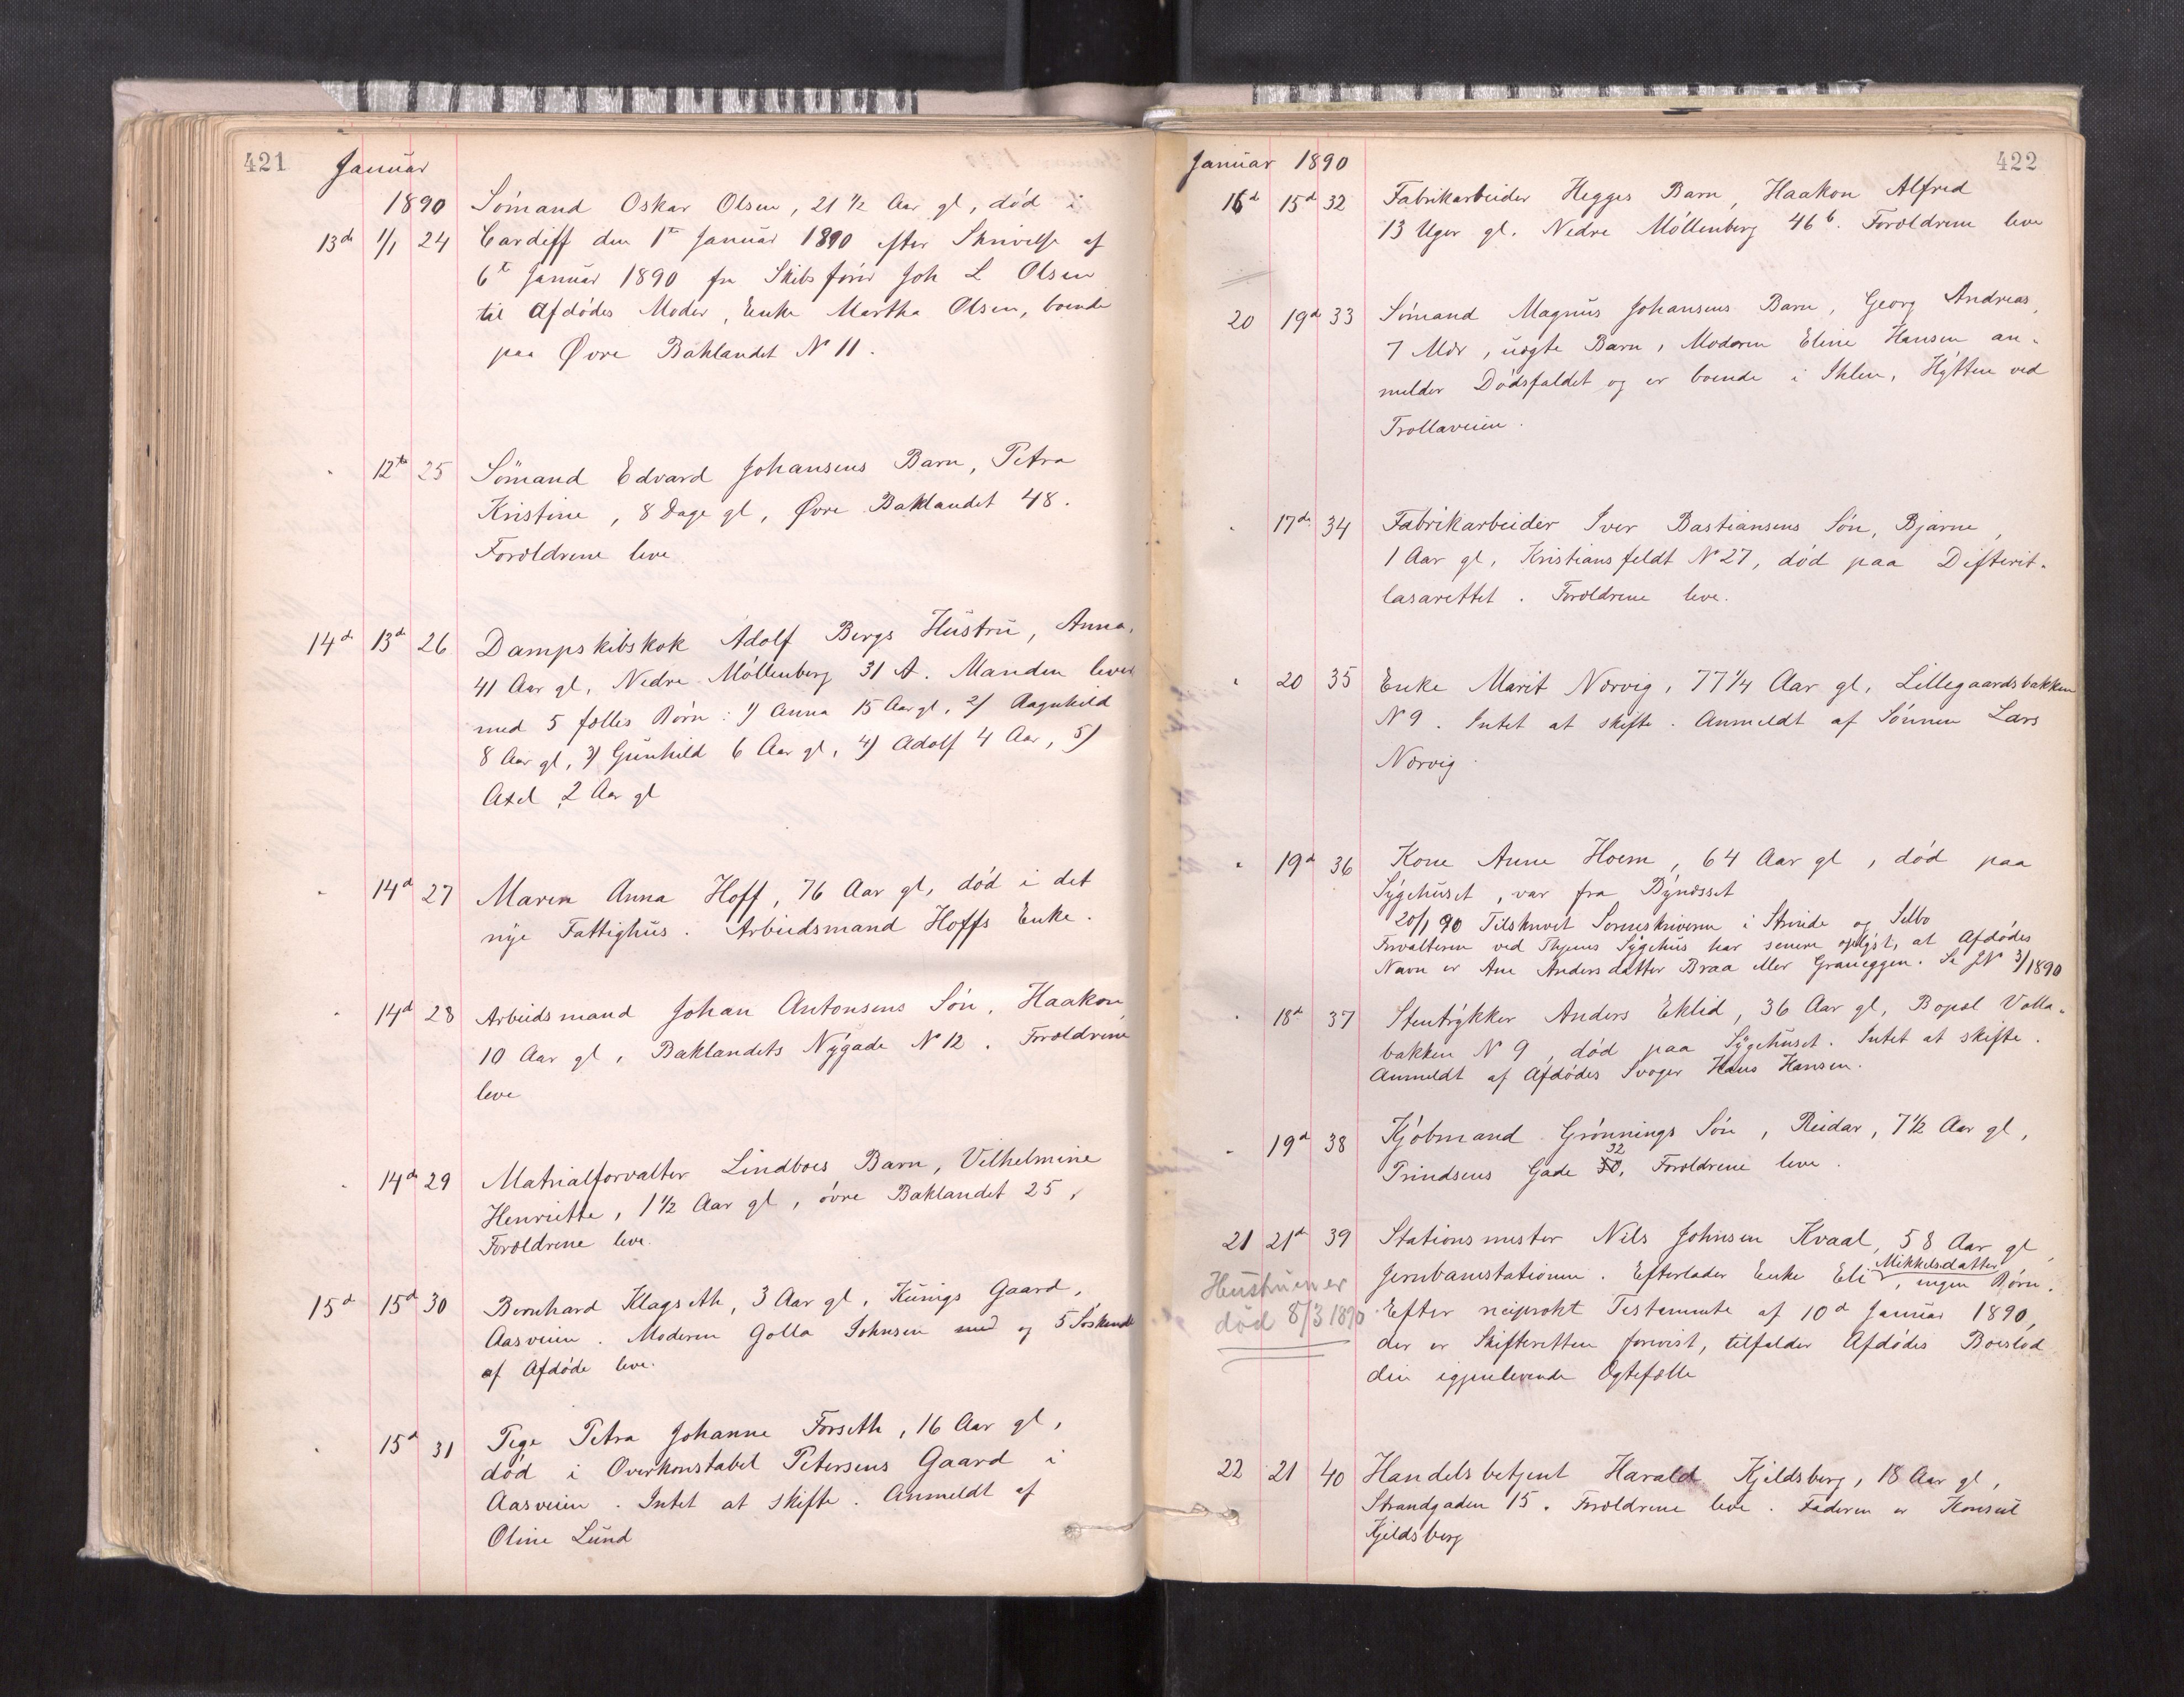 421 Januar
1890 Sömand Oskar Olsen, 21 1/2 Aar gl, död i
13de 1/1 24 Cardiff den 1te Januar 1890 efter Skrivelse af
6te Januar 1890 fra Skibsförer Joh L Olsen
til Afdödes Moder, Enke Martha Olsen, boende
paa Øvre Baklandet No 11.
" 12te 25 Sömand Edvard Johansens Barn, Petra
Kristine, 8 Dage gl, Øvre Baklandet 48.
Forældrene leve
14de 13de 26 Dampskibskok Adolf Bergs Hustru, Anna,
41 Aar gl, Nedre Möllenberg 31 A. Manden lever
med 5 fælles Börn: 1) Anna 15 Aar gl, 2) Aagnhild
8 Aar gl, 3) Gunhild 6 Aar gl, 4) Adolf 4 Aar, 5)
Axel, 2 Aar gl
" 14de 27 Maren Anna Hoff, 76 Aar gl, död i det
nye Fattighus. Arbeidsmand Hoffs Enke.
" 14de 28 Arbeidsmand Johan Antonsens Sön, Haakon,
10 Aar gl, Baklandets Nygade No 12. Forældrene
leve
" 14de 29 Matrialforvalter Lindboes Barn, Vilhelmine
Henriette, 1 1/2 Aar gl, övre Baklandet 25,
Forældrene leve.
15de 15de 30 Bernhard Klagseth, 3 Aar gl, Kunigs Gaard,
Aasveien. Moderen Golla Johnsen med og 5 Söskende
af Afdöde leve.
" 15de 31 Pige Petra Johanne Forseth, 16 Aar gl,
död i Overkonstabel Petersens Gaard i
Aasveien. Intet at skifte. Anmeldt af
Oline Lund
Januar 1890 422
16de 15de 32 Fabrikarbeider Hegges Barn, Haakon Alfred
13 Uger gl. Nedre Möllenberg 46 b. Forældrene leve
20 19de 33 Sömand Magnus Johansens Barn, Georg Andreas,
7 Mdr, uægte Barn, Moderen Eline Hansen an-
melder Dödsfaldet og er boende i Ihlen, Hytten ved
Trollaveien.
" 17de 34 Fabrikarbeider Iver Bastiansens Sön, Bjarne,
1 Aar gl, Kristiansfeldt No 27, död paa Difterit-
lasarettet. Forældrene leve.
" 20 35 Enke Marit Nervig, 77 1/4 Aar gl, Lillegaardsbakken
No 9. Intet at skifte. Anmeldt af Sönnen Lars
Nervig.
" 19de 36 Kone Anne Hoem, 64 Aar gl, död paa
Sygehuset, var fra Bynæsset
20/1 90 Tilskrevet Sorenskriveren i Strinde og Selbo
Forvalteren ved Thjems Sygehus har senere oplyst, at Afdödes
Navn er Ane Andersdatter Braa eller Graneggen. Se JN 3/1890
" 18de 37 Stentrykker Anders Eklid, 36 Aar gl, Bopæl Volla-
bakken No 9, död paa Sygehuset. Intet at skifte.
Anmeldt af Afdödes Svoger Hans Hansen.
" 19de 38 Kjöbmand Grönnings Sön, Reidar, 7 1/2 Aar gl,
32
Prindsens Gade 50, Forældrene leve.
21 21de 39 Stationsmester Nils Johnsen Kvaal, 58 Aar gl,
Mikkelsdatter
Jernbanestationen. Efterlader Enke Eli, ingen Börn.
Hustruen er
död 8/3 1890
Efter reciprokt Testamente af 10de Januar 1890,
der er Skifteretten forevist, tilfalder Afdödes Boeslod
den igjenlevende Ægtefælle
22 21 40 Handelsbetjent Harald Kjeldsberg, 18 Aar gl,
Strandgaden 15. Forældrene leve. Faderen er Konsul
Kjeldsberg